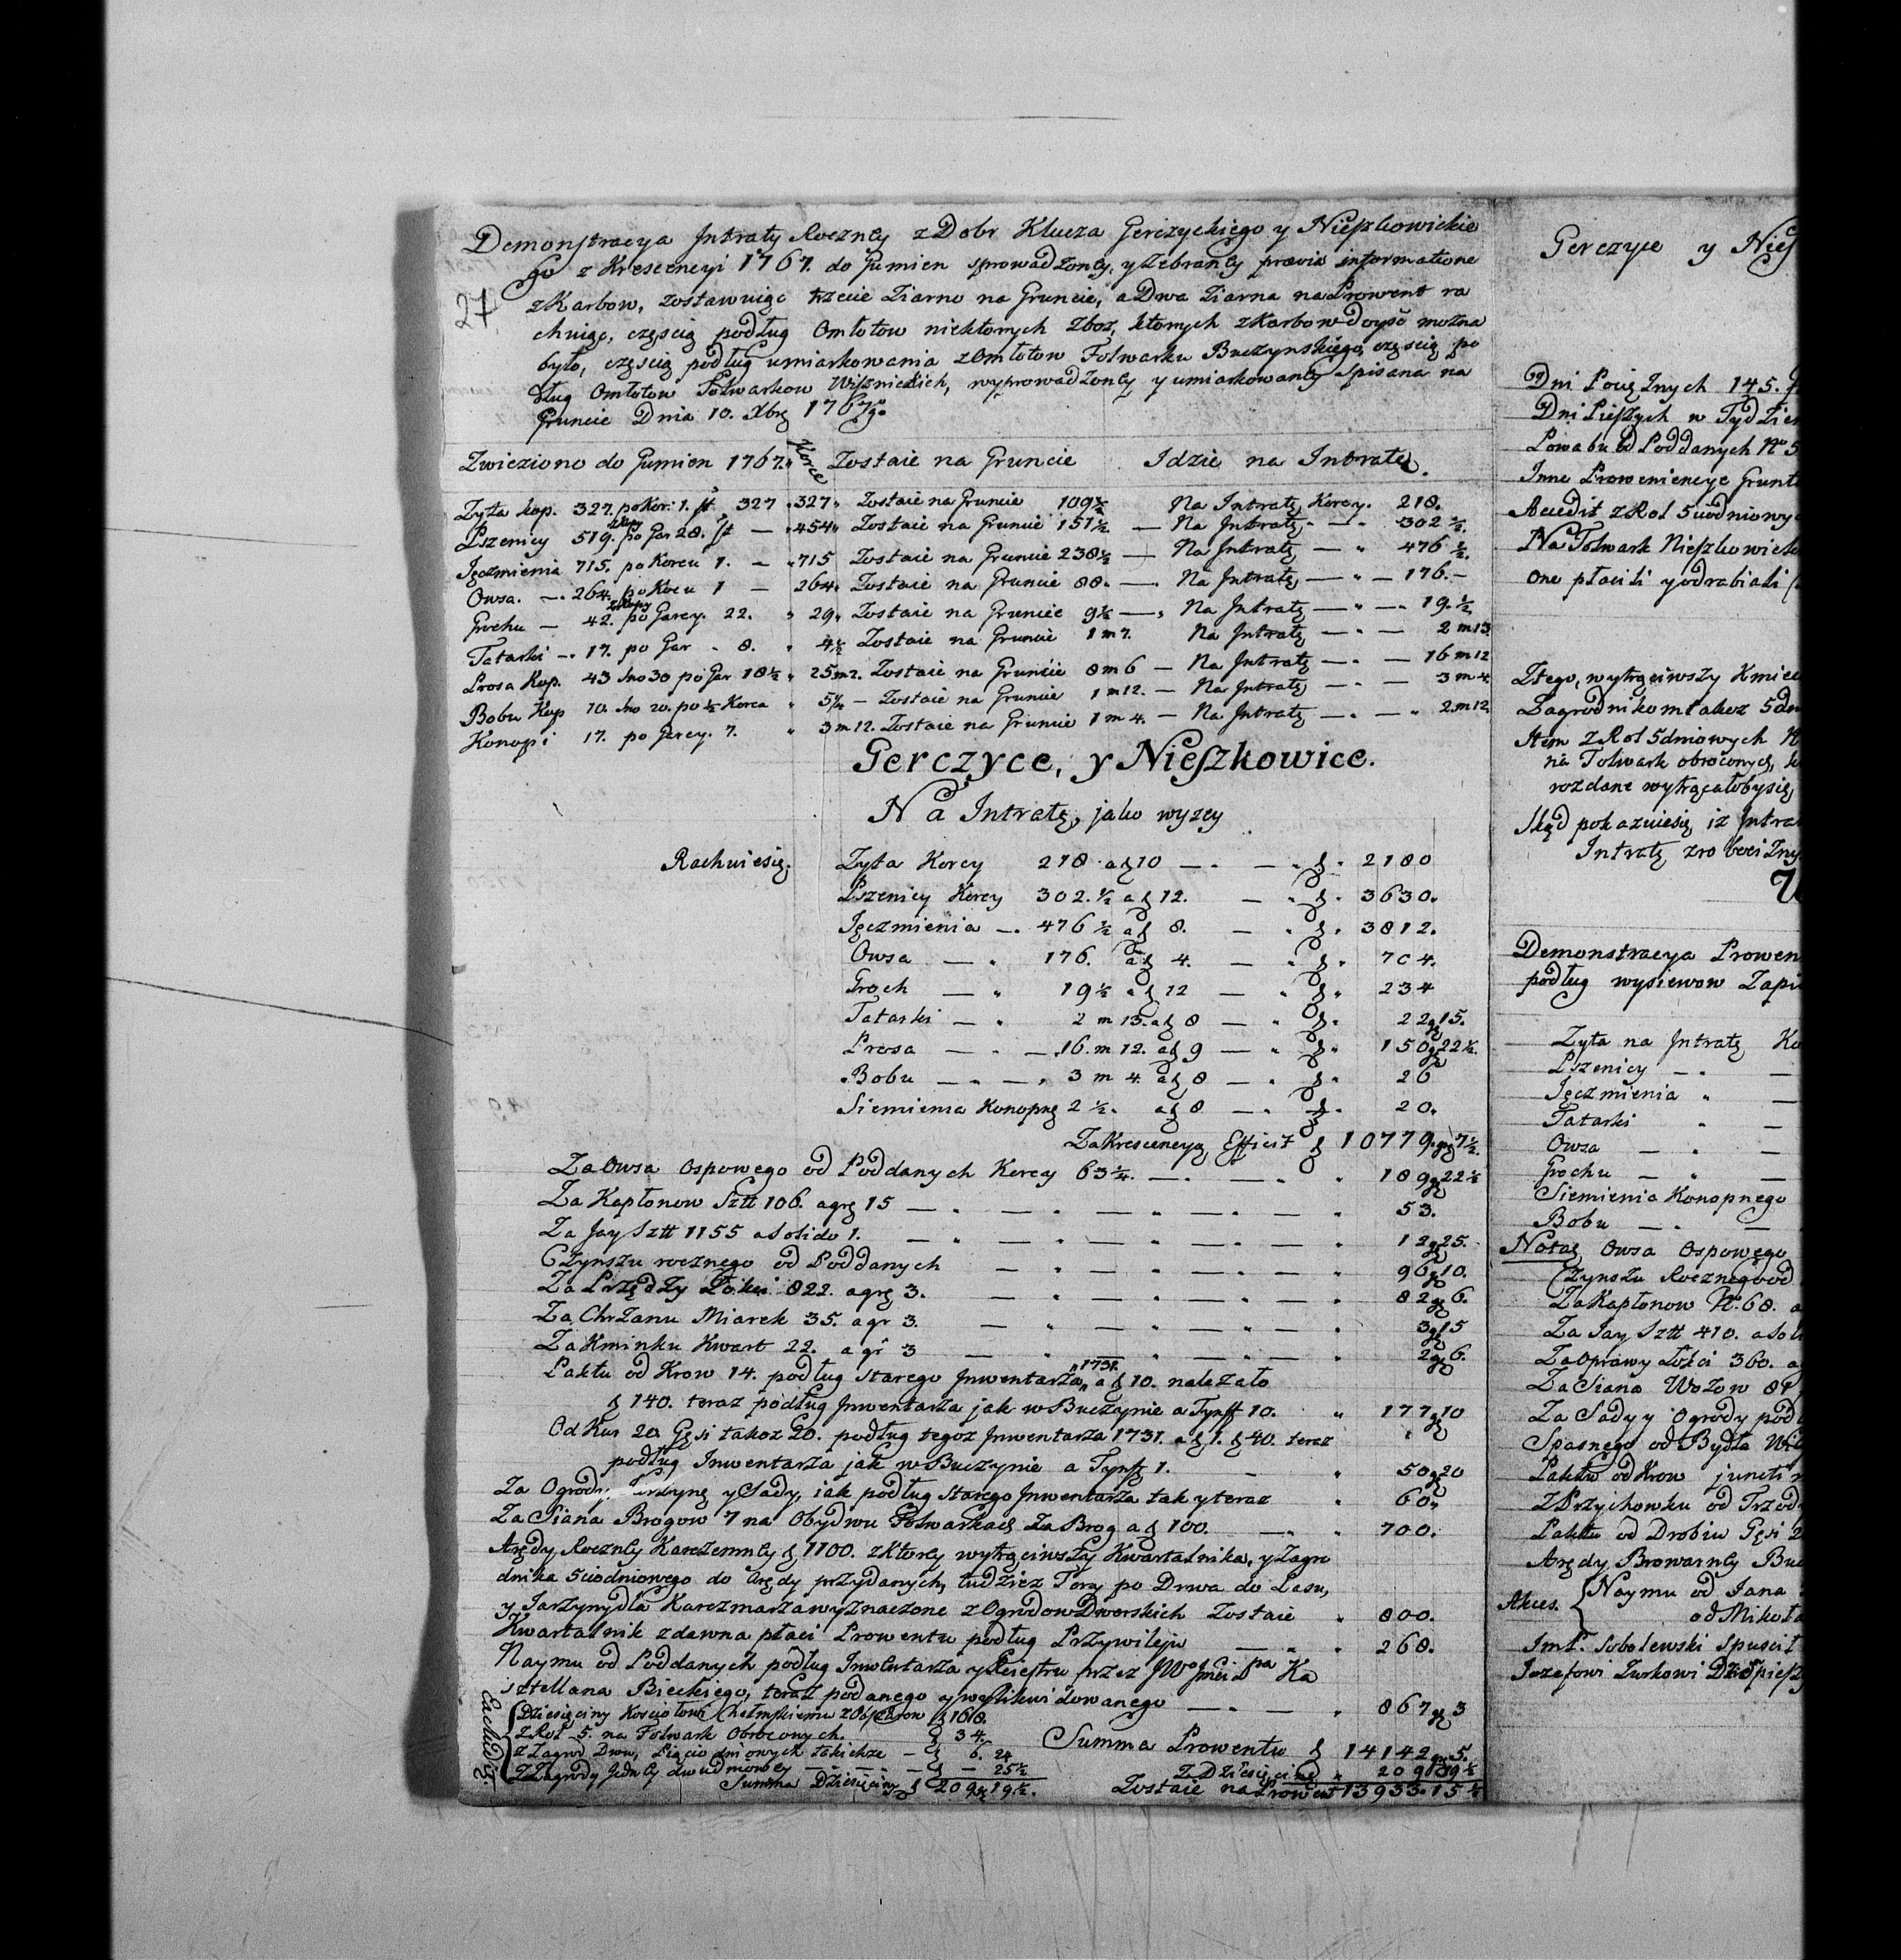 Demonstracya Intraty Roczney z Dobr Klucza Gerczyckiego y Nieszkowickie
go z Krescencyi 1767. do Gumien sprowadzoney, y Zebraney previa informatione
27
z Karbow, zostawuiąc trzecie Ziarno na Gruncie, a Dwa Ziarna na Prowent ra
chuiąc, częscią podług Omłotow niektorych Zboz, ktorych z Karbow doyść można
było, częscią podług umiarkowania z Omłotow Folwarku Buczynskiego, częscią po
dług Omłotow Folwarkow Wisznickich, wyprowadzoney y umiarkowaney Spisana na
Gruncie Dnia 10. Xbrę 1767go
Zwieziono do Gumien 1767. Korce Zostaie na Gruncie Idzie na Intratę.
Zyta kop. 327. po Kor: 1. ft 327 327 Zostaie na Gruncie 109½ Na Intratę Korcy. 218.
Pszenicy 519. z kopy po Gar 28. ft — 454 Zostaie na Gruncie 151½ — Na Intratę — 302½.
Ięczmienia 715. po Korcu 1. — 715 Zostaie na Gruncie 238½ — Na Intratę — 476½.
Owsa. — 264. po Kocu 1 — 264 Zostaie na Gruncie 88. — Na Intratę — 176.—
Grochu — 42. z kopy po Garcy. 22. 29 Zostaie na Gruncie 9½ — Na Intratę — 19.½
Tatarki — 17. po Gar 8. 4½ Zostaie na Gruncie 1 m 7. Na Intratę — 2 m 13
Prosa Kop. 43 sno 30 po Gar 18½ 25 m 2. Zostaie na Gruncie 8 m 6 — Na Intratę — 16 m 12
Bobu Kop 10. sno 20. po ½ Korca 5 — Zostaie na Gruncie 1 m 12. — Na Intratę — 3 m 4
Konopi 17. po Garcy. 7. 3 m 12. Zostaie na Gruncie 1 m 4. — Na Intratę — 2 m 12
Gerczyce, y Nieszkowice.
Na Intratę, jako wyzey
Rachuiesię. Zyta Korcy 218 a f 10 — f 2180
Pszenicy Korcy 302.½ a f 12. — f 3630.
Ięczmienia — 476½ a f 8. — f 3812.
Owsa — 176. a f 4. — f 704.
Groch — 19½ a f 12 — f 234
Tatarki — 2 m 13. a f 8 — f 22 g 15.
Prosa — 16. m 12. a f 9 — f 150 g 22½.
Bobu — 3 m 4. a f 8 — f 26
Siemienia Konopnę 2½. a f 8 — f 20.
Za Krescencyą Efficit f 10779. g 7½.
Za Owsa Ospowego od Poddanych Korcy 63¼. — 189 g 22½
Za Kapłonow Sztt 106. a grę 15 — 53.
Za Jay Sztt 1155 a Solido 1. — 12 g 25.
Czynszu rocznego od Poddanych — 96 g 10.
Za Przędzy Łokci 822. a grę 3. — 82 g 6.
Za Chrzanu Miarek 35. a gr 3. — 3 g 15
Za Kminku Kwart 22. a gr 3 — 2 g 6.
Paktu od Krow 14. podług starego Inwentarza 1731. a f 10. nalezało
f 140. teraz podług Inwentarza jak w Buczynie a Tynff 10. 177 g 10
Od Kur 20 Gęsi takoz 20. podług tegoz Inwentarza 1731. a f 1. f 40. teraz
podług Inwentarza jak w Buczynie a Tynff 1. — 50 g 20
Za Ogrody, y Sady, iak podług Starego Inwentarza tak y teraz 60
Za Siana Brogow 7 na Obydwu Folwarkach Za Brog a f 100. — 700.
Arędy Roczney Karczemney f 1100. z ktorey wytrąciwszy Kwartalnika, y Zagro
dnika 5ciodniowego do Arędy przydanych, tudziez Fory po Drwa do Lasu,
y Jarzyny dla Karczmarza wyznaczone z Ogrodow Dworskich Zostaie 800.
Kwartalnik zdawna płaci Prowentu podług Przywileju — 268.
Naymu od Poddanych podług Inwentarza y Reiestru przez JWo Jmci Pa Ka
sztellana Bieckiego, teraz podanego y wylikwidowanego — 867 g 3
Dziesięciny Kosciołowi Chełmskiemu z Obszarow f 168.
z Rol 5. na Folwark Obroconych. f 34.
z Zagrod Dwu, Pięciodniowych takichze — f 6. 24
z Zagrody Jedney dwudniowey — f — 25½
Summa Dziesięciny f 209 g 19.½.
Summa Prowentu f 14142 g 5.
Z Dziesięciną 209 g 19½
Zostaie na Prowent 13933. 15½
Gerczyce y Nies
Dni Pociężnych 145.
Dni Pieszych w Tydzien
Powabu od Poddanych No 5
Inne Prowenieneye Grunt
Accedit z Rol 5ciodniowy
Na Folwark Nieszkowick
one płacili y odrabiali
Ztego, wytrąciwszy Kmiec
Zagrodnikom takoz 5dn
Item z Rol 5dniowych
na Folwark obroconych,
rozdane wytrącałobysię,
Skąd pokazuiesię iz Intra
Intratę zrobocizny
Demonstracya Prowen
podług wysiewow Zapi
Zyta na Intratę Ko
Pszenicy —
Ięczmienia —
Tatarki —
Owsa —
Grochu —
Siemienia Konopnego
Bobu —
Nota Owsa Ospowego
Czynszu Rocznego od
Za Kapłonow No. 68. a
Za Jay Sztt 410. a Sol
Za Oprawy Łokci 360. a
Za Siana Wozow 81
Za Sady y Ogrody pod
Spasnego od Bydła
Paktu od Krow junctim
z Przychowku od Trzod
Paktu od Drobiu Gęsi 2
Arędy Browarney Buc
Akces. Naymu od Jana
od Mikoła
Jmć. Sobolewski Spuscił
Iozefowi Zurkowi